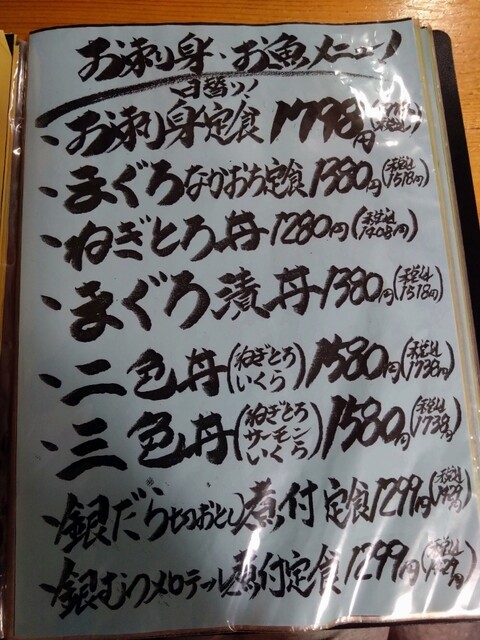 お刺身・お魚メニュー
日替り!
、お刺身定食 1798円
、まぐろなかおち定食 1380円(税込1518円)
、ねぎとろ丼 1280円(税込1408円)
、まぐろ漬丼 1380円(税込1518円)
、二色丼(ねぎとろ いくら) 1580円(税込1738円)
、三色丼(ねぎとろ サーモン いくら) 1580円(税込1738円)
、銀だら切おとし煮付定食 1299円
、銀むつメロ煮付定食 1299円